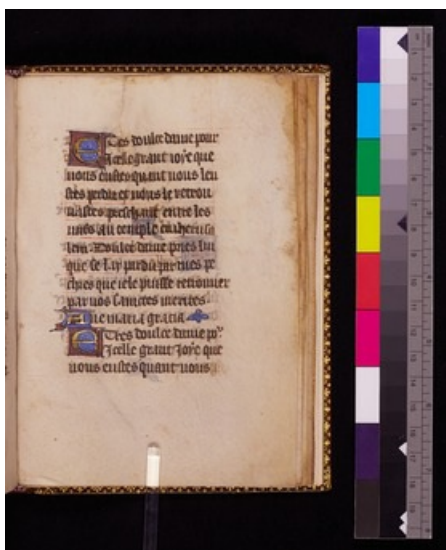 E tres doulce dame pour
icelle grant ioye que
vous eustes quant vous leu
stes perdu et vous le retrou
uastes preschant entre les
iuifs au temple en iherusa
lem. Doulce dame pries lui
que se lay perdu par mes pe
chies que ie le puisse retrouuer
par vos sainctes merites
Aue maria gracia
E Tres doulce dame po
icelle grant Ioye que
vous eustes quant vous